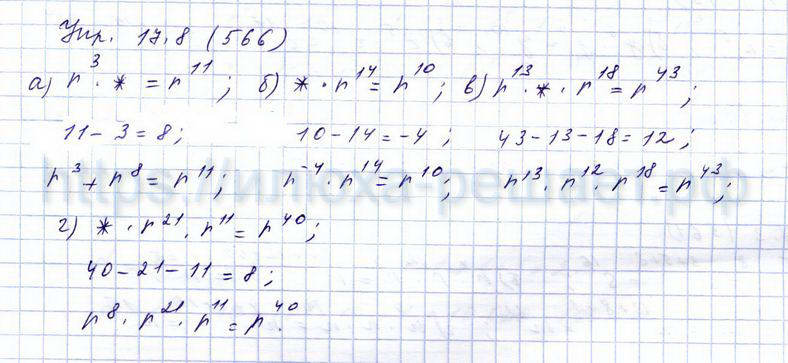 Упр. 17.8 (566)
а) r³ · * = r¹¹; б) * · r¹⁴ = r¹⁰; в) r¹³ · * · r¹⁸ = r⁴³;
11 - 3 = 8; 10 - 14 = -4; 43 - 13 - 18 = 12;
r³ + r⁸ = r¹¹; r⁻⁴ · r¹⁴ = r¹⁰; r¹³ · r¹² · r¹⁸ = r⁴³;
https://илюха-решает.рф
г) * · r²¹ · r¹¹ = r⁴⁰;
40 - 21 - 11 = 8;
r⁸ · r²¹ · r¹¹ = r⁴⁰.